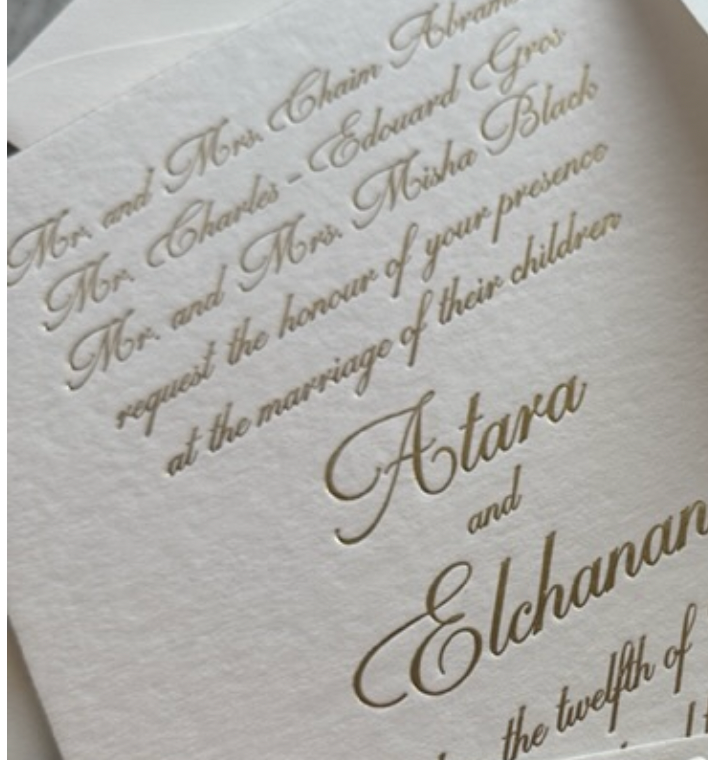 Mr. and Mrs. Chaim Abrams
Mr. Charles - Edouard Gros
Mr. and Mrs. Misha Black
request the honour of your presence
at the marriage of their children
Atara
and
Elchanan
the twelfth of